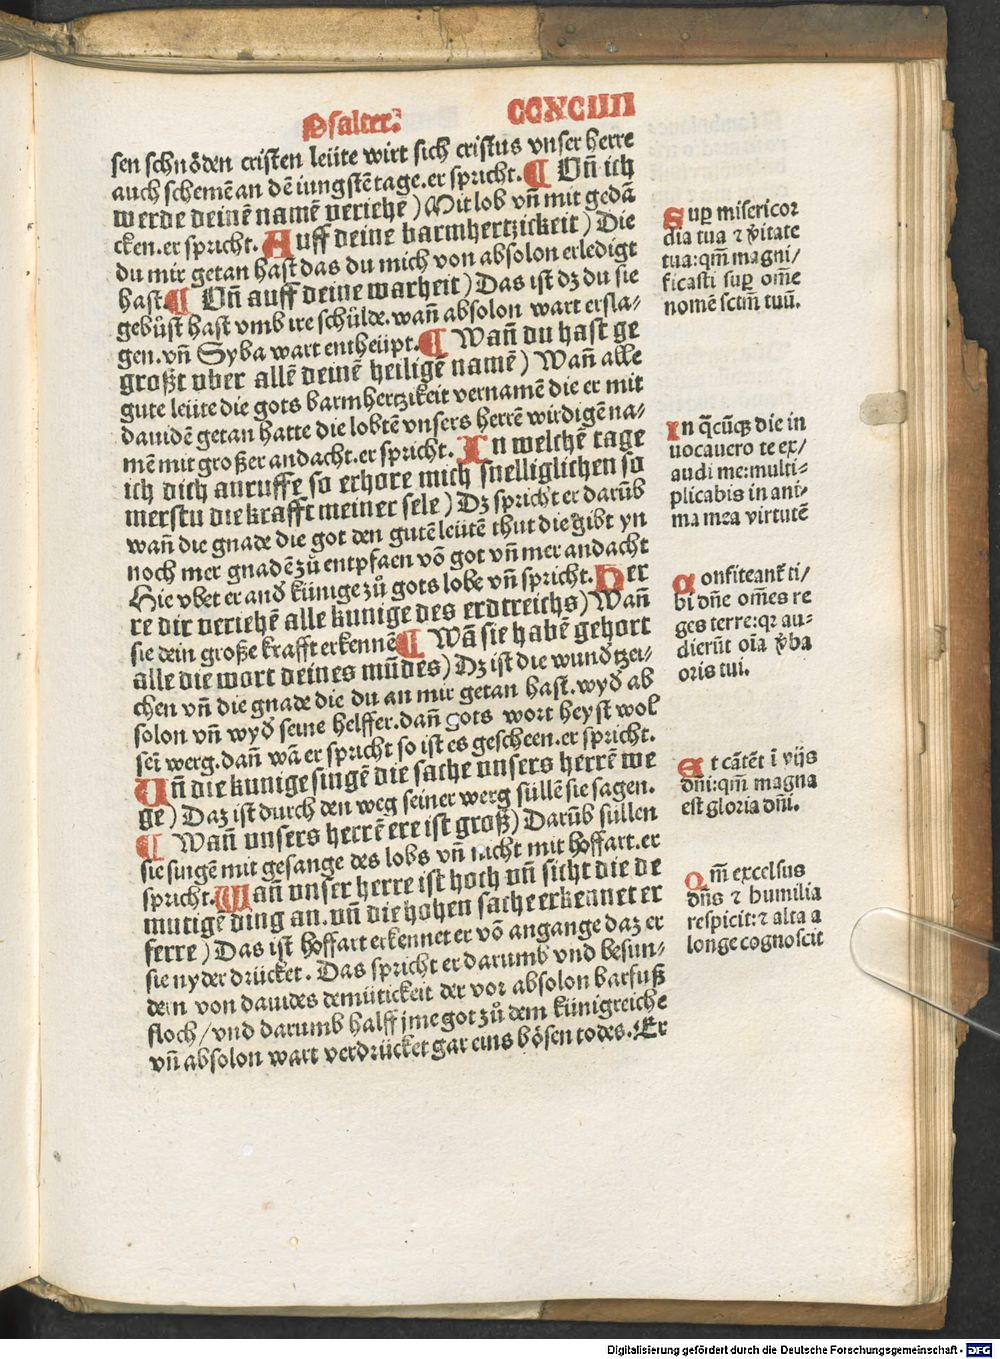 Psalter. CCXCIIII
sen schnöden cristen leüte wirt sich cristus vnser herre
auch schemē an dē iungstē tage. er spricht. ¶ Vn̄ ich
werde deinē namē veriehē) Mit lob vn̄ mit gedā
cken. er spricht. Auff deine barmhertzickeit) Die
du mir getan hast das du mich von absolon erledigt
hast ¶ Vn̄ auff deine warheit) Das ist dz du sie
gebůst hast vmb ire schülde. wan̄ absolon wart ersla-
gen. vn̄ Syba wart entheüpt. ¶ Wan̄ du hast ge
großt vber allē deinē heiligē namē) Wan̄ alle
gute leüte die gots barmhertzikeit vernamē die er mit
dauidē getan hatte die lobtē vnsers herrē wirdigē na-
mē mit großer andacht. er spricht. In welchē tage
ich dich anruffe so erhore mich snelliglichen so
merstu die krafft meiner sele) Dz spricht er darūb
wan̄ die gnade die got den gutē leütē thut die gibt yn
noch mer gnadē zů entpfaen vō got vn̄ mer andacht
Hie vbet er and̄ künige zů gots lobe vn̄ spricht. Her
re dir veriehē alle kunige des erdtreichs) Wan̄
sie dein große krafft erkennē ¶ Wā sie habē gehort
alle die wort deines mūdes) Dz ist die wund̄tzei-
chen vn̄ die gnade die du an mir getan hast. wyd̄ ab
solon vn̄ wyd̄ seine helffer. dan̄ gots wort heyst wol
sei werg. dan̄ wā er spricht so ist es gescheen. er spricht.
Vn̄ die kunige singē die sache vnsers herrē we
ge) Daz ist durch den weg seiner werg süllē sie sagen.
¶ Wan̄ vnsers herrē ere ist groß) Darūb süllen
sie singē mit gesange des lobs vn̄ nicht mit hoffart. er
spricht. Wan̄ vnser herre ist hoch vn̄ sicht die de
mutigē ding an. vn̄ die hohen sache erkennet er
ferre) Das ist hoffart erkennet er vō angange daz er
sie nyder drücket. Das spricht er darumb vnd besun-
dern von dauides demütickeit der vor absolon barfuß
floch / vnd darumb halff jme got zů dem künigreiche
vn̄ absolon wart verdrücket gar eins bösen todes. Er
Suꝑ misericor
dia tua ⁊ v̓itate
tua: qm̄ magni/
ficasti suꝑ om̄e
nomē sctm̄ tuū.
In q̄cūqꝫ die in
uocauero te ex/
audi me: multi-
plicabis in ani-
ma mea virtutē
Confiteant᷑ ti/
bi dn̄e om̄es re
ges terre: qꝛ au-
dierūt oīa v̓ba
oris tui.
Et cātēt ī vijs
dn̄i: qm̄ magna
est gloria dn̄i.
Qm̄ excelsus
dn̄s ⁊ humilia
respicit: ⁊ alta a
longe cognoscit
Digitalisierung gefördert durch die Deutsche Forschungsgemeinschaft - DFG